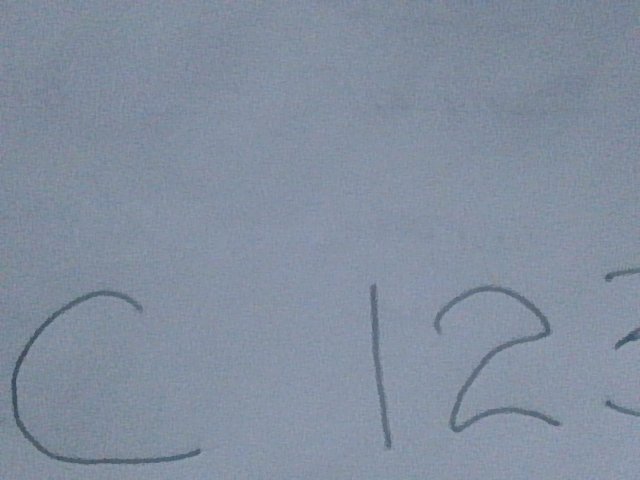 C 123